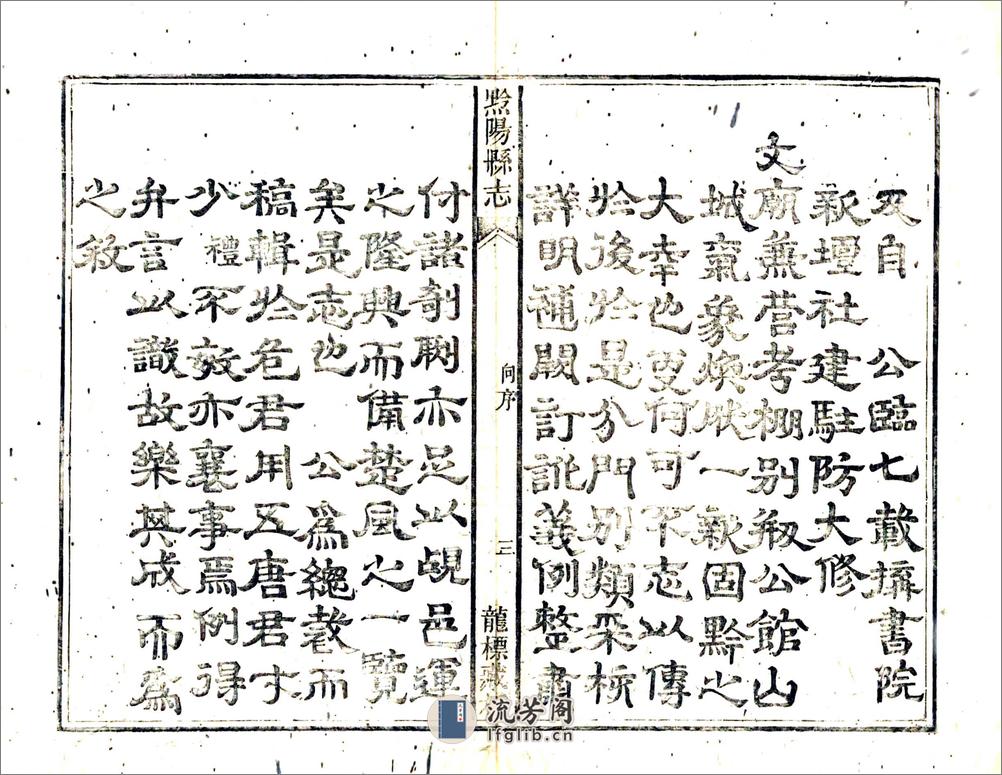 及自　公臨七載擴書院
新壇社建駐防大修
文廟兼营考棚别剏公館山
城氣象煥然一新固黔之
大幸也更何可不志以傳
於後於是分門别類采析
詳明補闕訂訛義例整肅
黔陽縣志
向序
三
龍標
付諸剞劂亦足以覘邑運
之隆興而備楚風之一覽
矣是志也　公爲總裁而
稿輯於危君用五唐君才
少禮不敏亦襄事焉例得
弁言以識故樂其成而爲
之敘
流芳阁
lfglib.cn